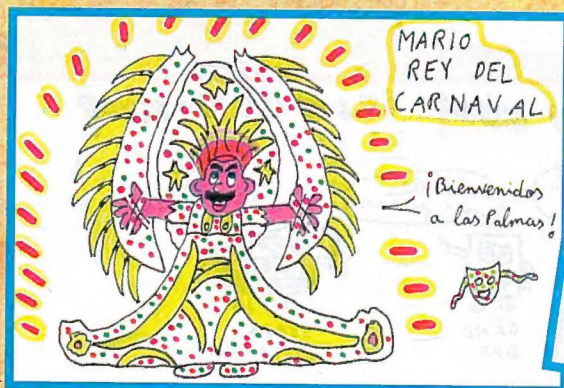 MARIO
REY DEL
CARNAVAL
¡Bienvenidos
a las Palmas!